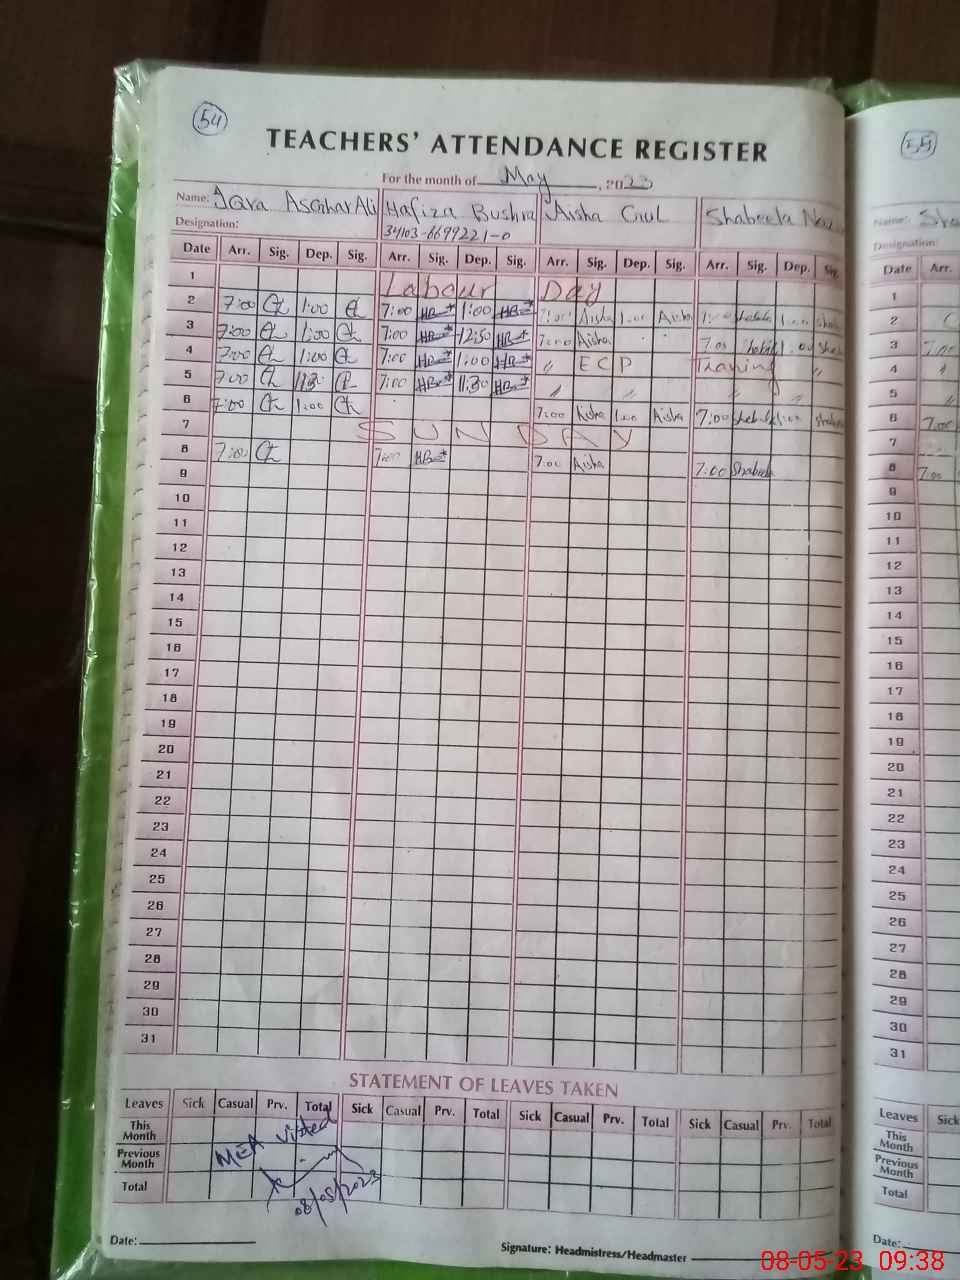 54
TEACHERS' ATTENDANCE REGISTER
For the month of May, 2023
Name: Iqra Asghar Ali Hafiza Bushra Aisha Gul Shabeela
Designation: 34103-6699221-0
Date Arr. Sig. Dep. Sig. Arr. Sig. Dep. Sig. Arr. Sig. Dep. Sig. Arr. Sig. Dep. Sig.
1 Labour Day
2 7:00 1:00 7:00 HB 1:00 HB 7:00 Aisha 1:00 Aisha
3 7:00 1:00 7:00 HB 12:30 HB 7:00 Aisha 7:00 1:00
4 7:00 1:00 7:00 HB 1:00 HB " E C P Training "
5 7:00 11:30 7:00 HB 11:30 HB " " " "
6 7:00 1:00 7:00 Aisha 1:00 Aisha 7:00 1:00
7 SUNDAY
8 7:00 7:00 HB 7:00 Aisha 7:00 Shabeela
9
10
11
12
13
14
15
16
17
18
19
20
21
22
23
24
25
26
27
28
29
30
31
STATEMENT OF LEAVES TAKEN
Leaves Sick Casual Prv. Total Sick Casual Prv. Total Sick Casual Prv. Total Sick Casual Prv. Total
This Month
Previous Month
Total
MEA visited
08/05/2023
Date:
Signature: Headmistress/Headmaster
55
Name:
Designation:
Date Arr.
1
2
3 7:00
4 "
5 "
6 7:00
7
8 7:00
9
10
11
12
13
14
15
16
17
18
19
20
21
22
23
24
25
26
27
28
29
30
31
Leaves Sick
This Month
Previous Month
Total
Date:
08-05-23 09:38